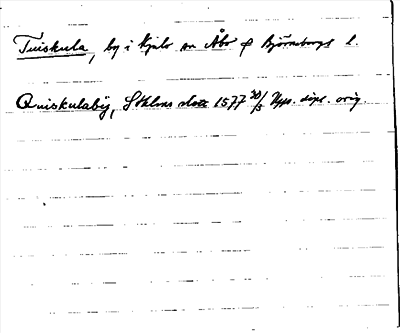 Tuiskula, by i Kjulo sn Åbo o Björneborgs l.
Quiskulaby, Sthlms slott 1577 30/3 Upps. dipl. orig.